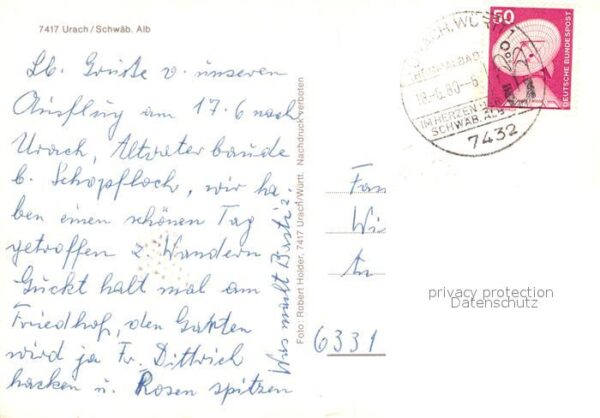 7417 Urach / Schwäb. Alb
Lb. Grüße v. unseren
Ausflug am 17.6 nach
Urach, Altvaterbaude
b. Schopfloch, wir ha
ben einen schönen Tag
getroffen z. Wandern
Guckt halt mal am
Friedhof, den Garten
wird ja Fr. Dittrich
hacken u. Rosen spitzen
Was macht Basti?
Foto: Robert Holder, 7417 Urach/Württ. Nachdruck verboten
50
DEUTSCHE BUNDESPOST
URACH, WÜRTT 1
18.-6.80-
IM HERZEN D.
SCHWÄB. ALB
7432
Fam
Wi
6331
privacy protection
Datenschutz